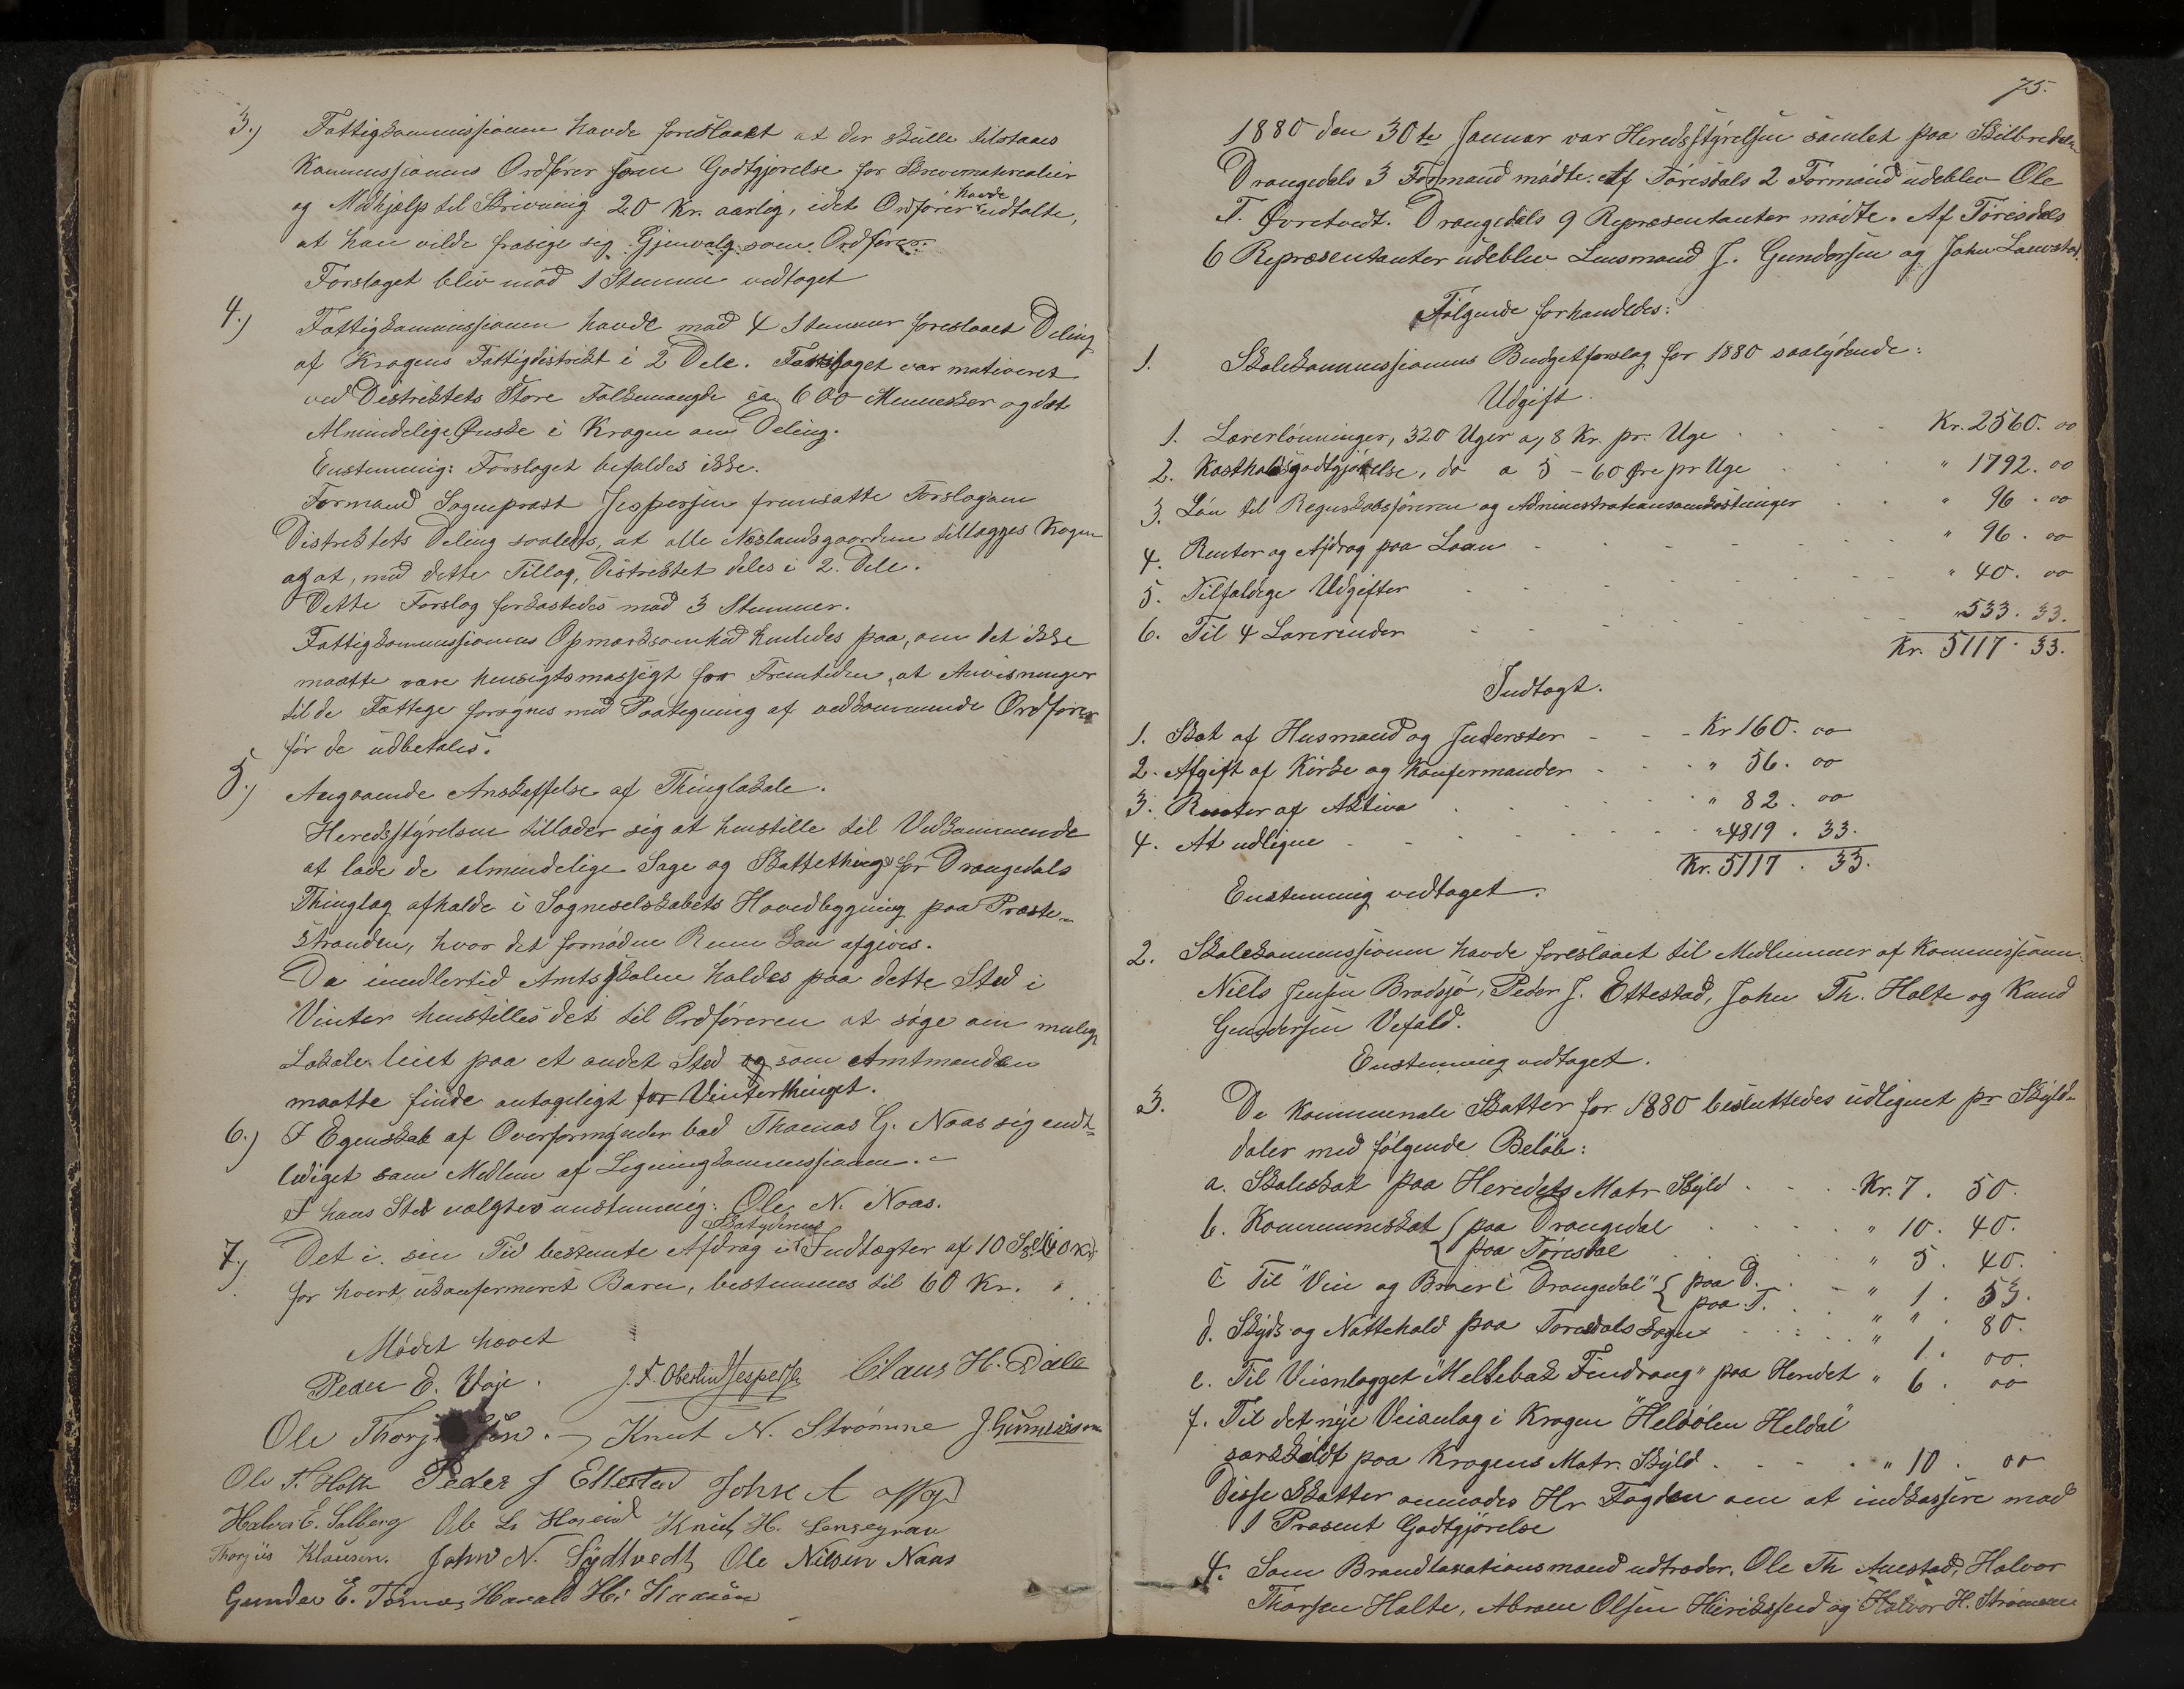 3.) Fattigkommissionen havde foreslaaet at der skulle tilstaaes
Kommissionens Ordfører som Godtgjørelse for Skrivematerialier
og Medhjælp til Skrivning 20 Kr. aarlig, idet Ordfører havde udtalte,
at han vilde frasige sig Gjenvalg som Ordfører.
Forslaget blev mod 1 Stemme vedtaget
4.) Fattigkommissionen havde mod 4 Stemmer foreslaaet Deling
af Kragens Fattigdistrikt i 2 Dele. Forslaget var motiveret
ved Distriktets Store Folkemængde ca. 600 Mennesker og det
Almindelige Ønske i Kragen om Deling.
Enstemmig: Forslaget befaldes ikke.
Formand Sogneprest Jespersen fremsatte Forslag om
Distriktets Deling saaledes, at alle Næslandsgaardene tillægges Kragen
og at, med dette Tillæg, Distriktet deles i 2 Dele.
Dette Forslag forkastedes mod 3 Stemmer.
Fattigkommissionens Opmærksomhed henledes paa, om det ikke
maatte være hensigtsmæssigt for Fremtiden, at Anvisninger
til de Fattige forsynes med Paategning af vedkommende Ordfører
før de udbetales.
5.) Angaaende Anskaffelse af Thinglokale.
Heredsstyrelsen tillader sig at henstille til Vedkommende
at lade de almindelige Sage og Skattething for Drangedals
Thinglag afholde i Sogneselskabets Hovedbygning paa Præste-
stranden, hvor det fornødne Rum kan afgives.
Da imidlertid Amtsskolen holdes paa dette Sted i
Vinter henstilles det til Ordføreren at søge om mulig
Lokale leiet paa et andet Sted og som Amtmanden
maatte finde antageligt for Vinterthinget.
6.) I Egenskab af Overformynder bad Thomas G. Naas sig endt-
lediget som Medlem af Ligningskommissionen.
I hans Sted valgtes enstemmig: Ole N. Naas.
7.) Det i sin Tid bestemte Afdrag i Skatyderens Indtægter af 10 Spd (40 Kr)
for hvert ukonfirmeret Barn, bestemmes til 60 Kr.
Mødet hævet
Peder E. Voje. J. F. Oberlin Jespersen Claus H. Dale
Ole Knut N. Strømme J. Gundersen
Ole T. Holte Peder J Ettestad John A
Halvor E. Solberg Ole L. Knud H.
Thorjus Klausen. John N. Sydtvedt Ole Nilsen Naas
Gunder E. Harald H.
75.
1880 den 30te Januar var Heredsstyrelsen samlet paa Skilbredalen
Drangedals 3 Formænd mødte. Af Tørisdals 2 Formænd udeblev Ole
T. Øvretvedt. Drangedals 9 Repræsentanter mødte. Af Tørisdals
6 Repræsentanter udeblev Lensmand J. Gundersen og John
Følgende forhandledes:
1. Skolekommissionens Budgetforslag for 1880 saalydende:
Udgift
1. Lærerlønninger, 320 Uger a, 8 Kr. pr. Uge Kr. 2560. 00
2. Kostholdsgodtgjørelse, do a 5 - 60 Øre pr Uge " 1792. 00
3. Løn til Regnskabsføreren og Administrationsomkostninger " 96. 00
4. Renter og Afdrag paa Laan " 96. 00
5. Tilfældige Udgifter " 40. 00
6. Til 4 Lærerinder " 533. 33.
Kr. 5117. 33.
Indtægt.
1. Skat af Husmænd og Inderster Kr 160. 00
2. Afgift af Kirke og Konfirmander " 56. 00
3. Renter af Aktiva " 82. 00
4. At udligne " 4819. 33.
Kr. 5117. 33.
Enstemmig vedtaget.
2. Skolekommissionen havde foreslaaet til Medlemmer af Kommissionen
Niels Jensen Brødsjø, Peder J. Ettestad, John Th. Holte og Knud
Gundersen Vefald.
Enstemmig vedtaget.
3. De kommunale Skatter for 1880 besluttedes udlignet pr Skyld-
daler med følgende Beløb:
a. Skoleskat paa Heredets Matr Skyld Kr. 7. 50.
b. Kommuneskat { paa Drangedal " 10. 40.
{ paa Tørisdal " 5. 40.
c Til "Veie og Broer i Drangedal" { paa D. " 1. 53.
paa T. " " 80.
d. Skyds og Nattehold paa Tørisdals Sogn " 1. 00.
e. Til Veianlægget "Meltebæk Findrang" paa Heredet " 6. 00
f. Til det nye Veianlæg i Kragen "Helbølen Heldal"
særskildt paa Kragens Matr. Skyld " 10. 00
Disse Skatter anmodes Hr Fogden om at indkassere mod
1 Prosent Godtgjørelse
4. Som Brandtaxationsmænd udtræder, Ole Th Auestad, Halvor
Thorsen Holte, Abram Olsen og Halvor H. Strømme